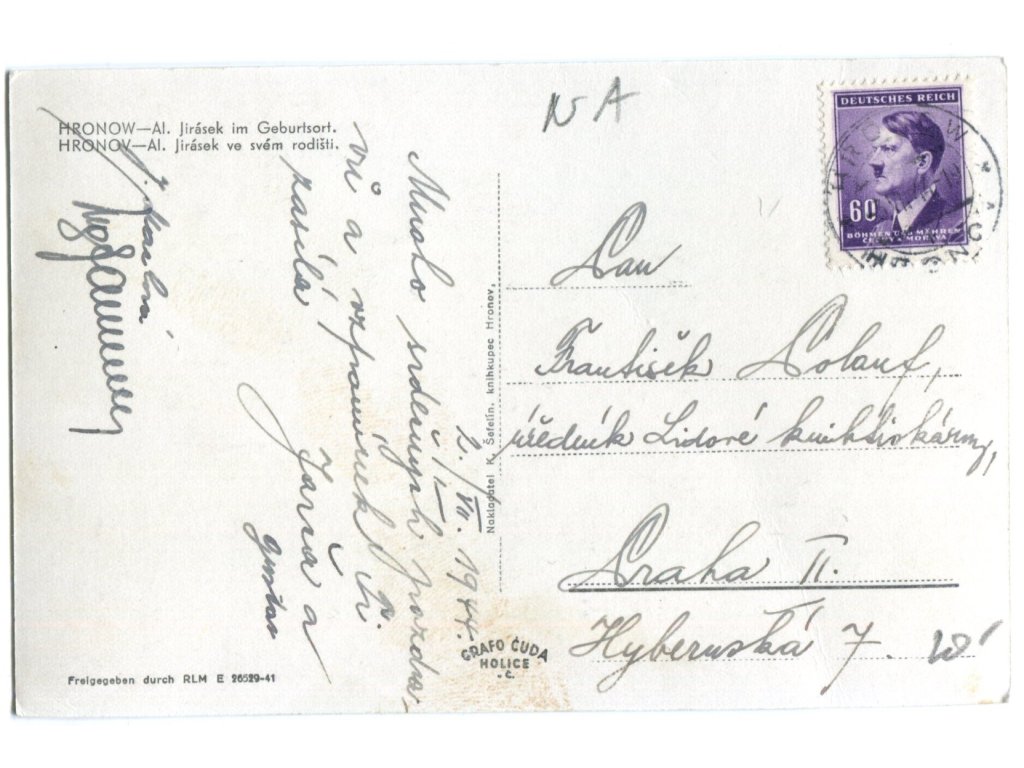 HRONOW—Al. Jirásek im Geburtsort.
HRONOV—Al. Jirásek ve svém rodišti.
NA
DEUTSCHES REICH
60
BÖHMEN UND MÄHREN
ČECHY A MORAVA
2./VII. 1944.
Mnoho srdečných pozdra
vů a vzpomínek
zasílá Jarča a
Gustav
J.
Nakladatel K. Šefelín, knihkupec Hronov.
Pan
František Polauf,
úředník Lidové knihtiskárny,
Praha II.
Hybernská 7.
GRAFO ČUDA
HOLICE
-č.
Freigegeben durch RLM E 26529-41